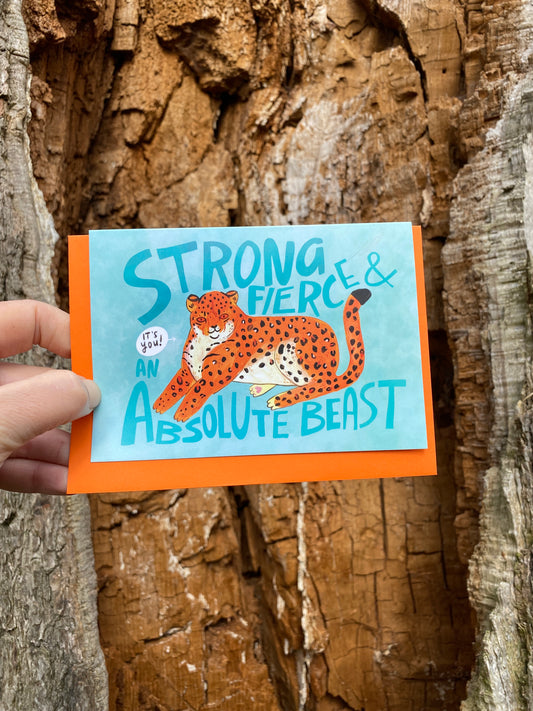 STRONG
FIERCE &
IT'S
YOU!
AN
ABSOLUTE BEAST